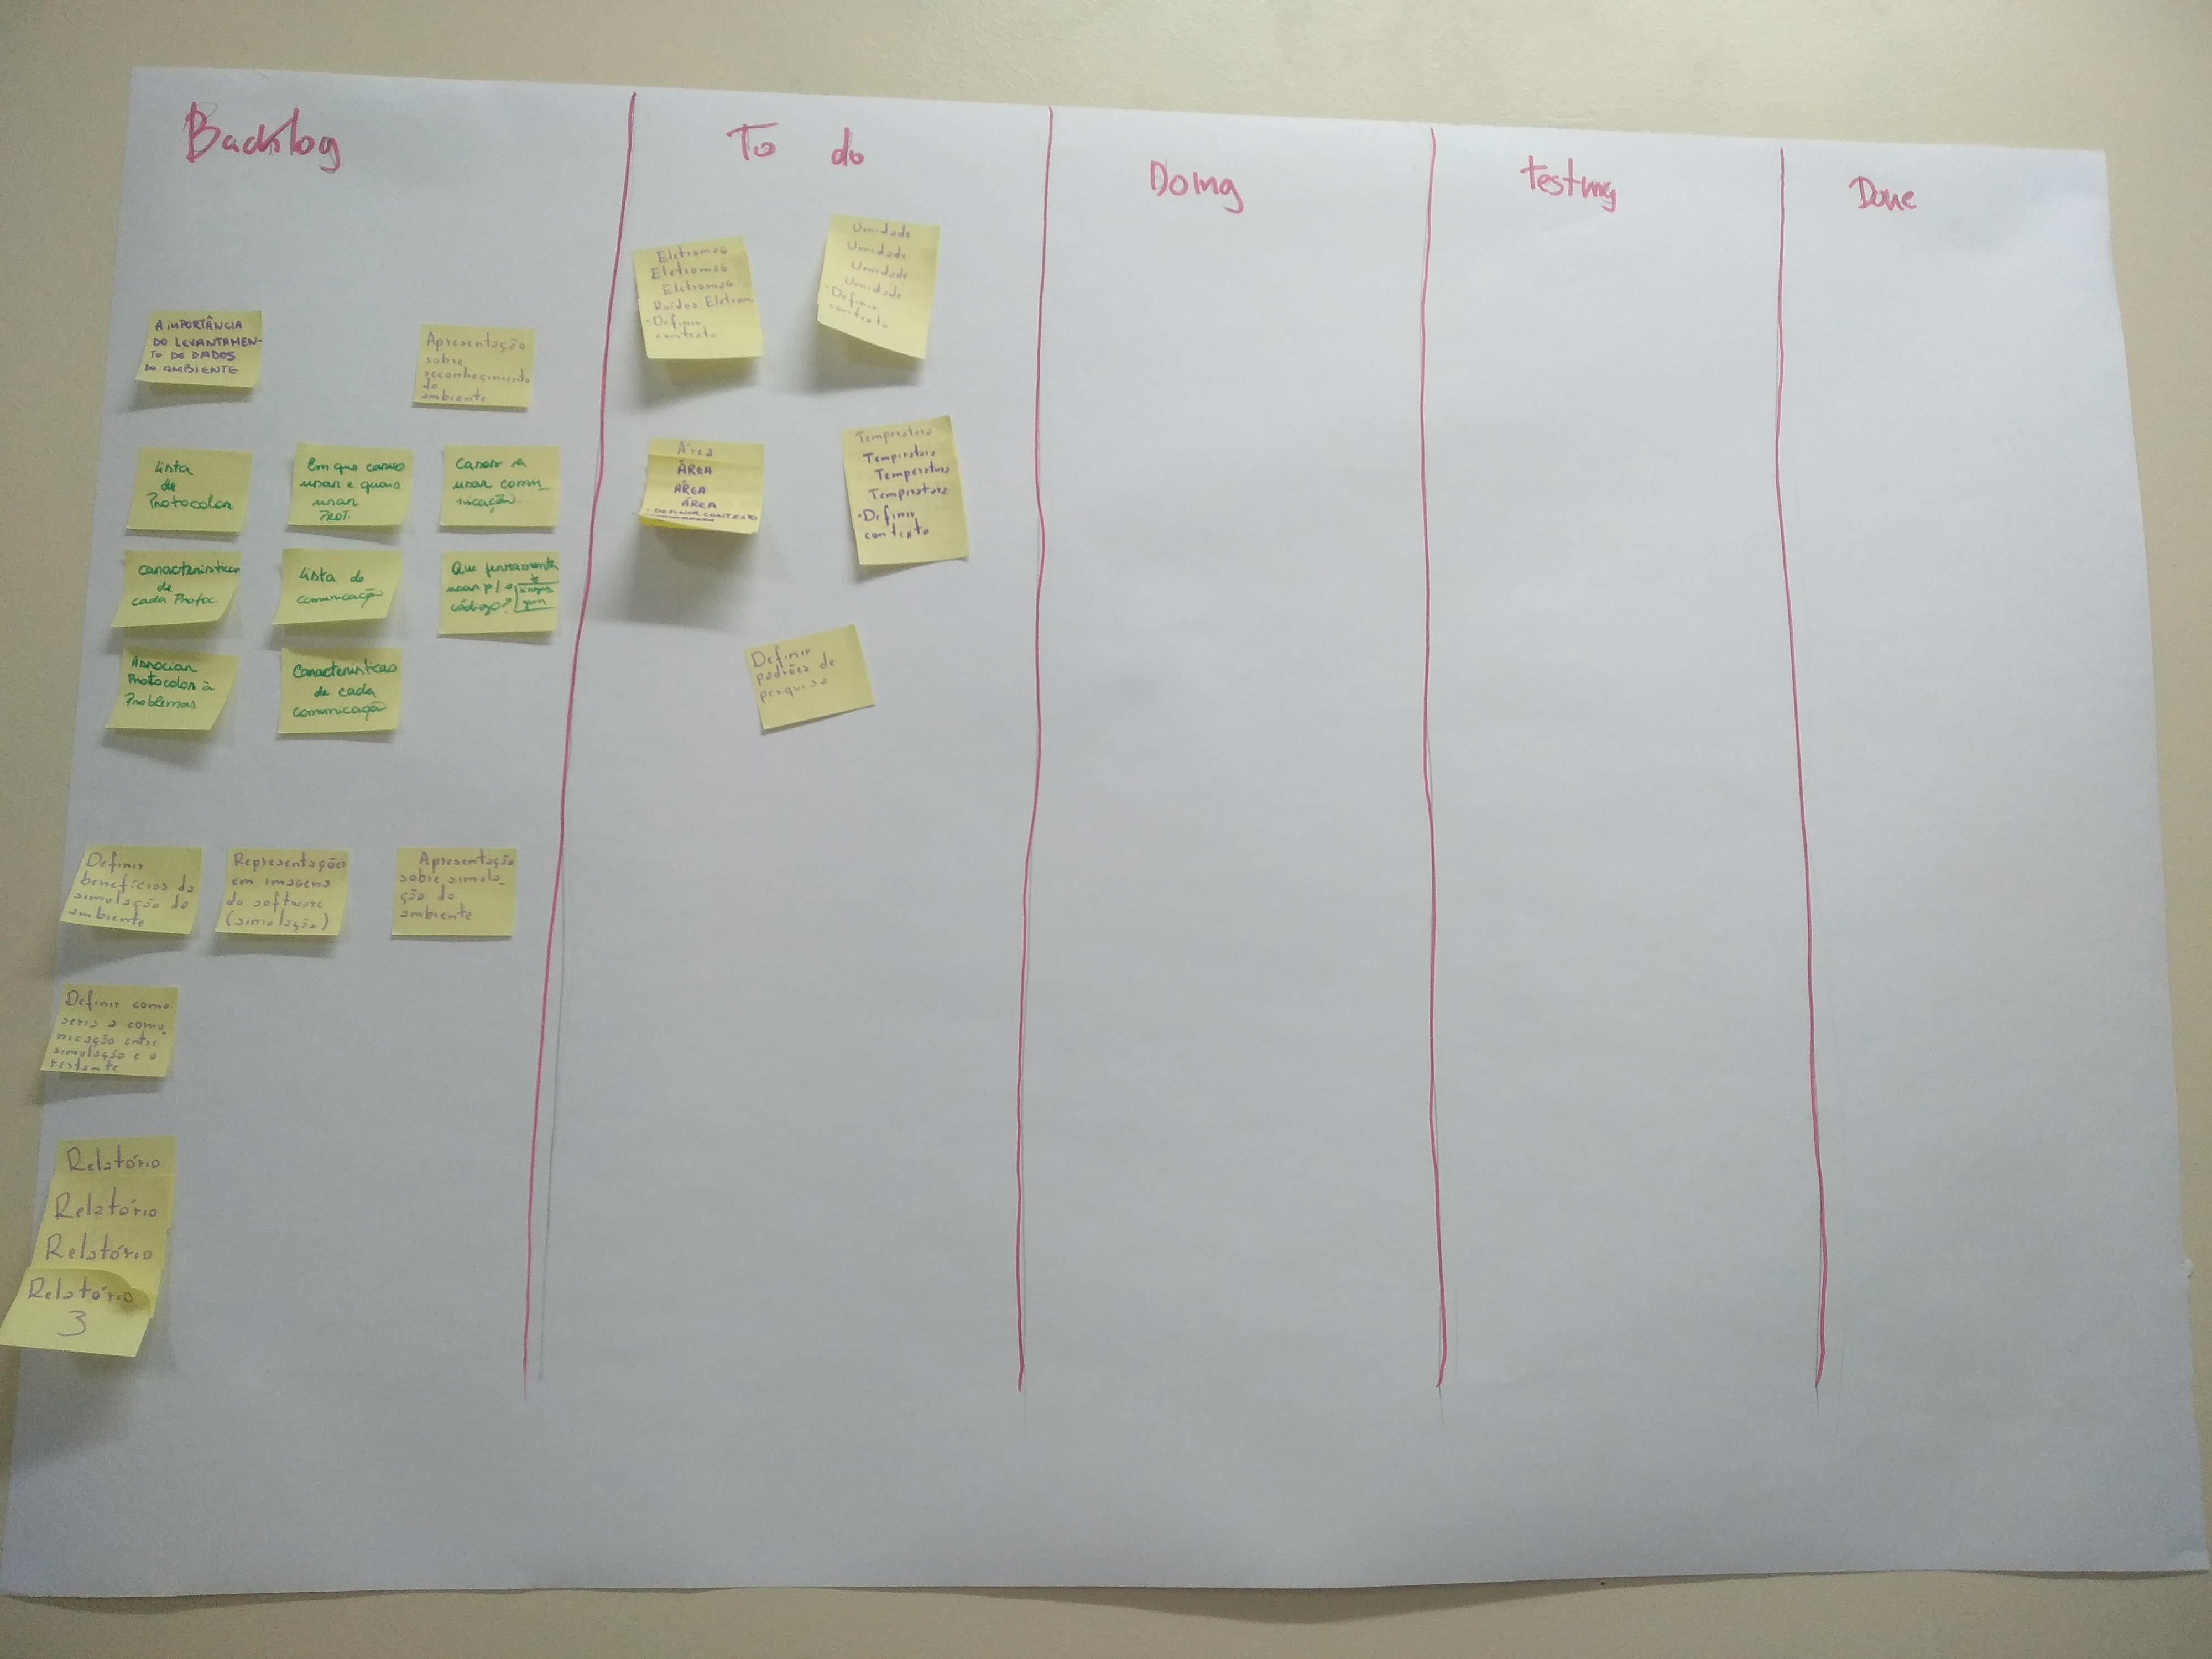 Backlog
To do
Doing
testing
Done
A IMPORTÂNCIA
DO LEVANTAMEN-
TO DE DADOS
DO AMBIENTE
Apresentação
sobre
reconhecimento
do
ambiente
Lista
de
Protocolos
Em que casos
usar e quais
usar
PROT.
Casos a
usar comu-
nicação
Características
de
cada Protoc.
Lista de
comunicação
Que ferramenta
usar p/ o
código?
Associar
Protocolos à
Problemas
Características
de cada
comunicação
Definir
benefícios da
simulação do
ambiente
Representação
em imagens
do software
(simulação)
Apresentação
sobre simula-
ção do
ambiente
Definir como
seria a comu
nicação entre
simulação e o
restante
Relatório
Relatório
Relatório
Relatório
3
Eletromag
Eletromag
Eletromag
Ruídos Eletrom
·Definir
contexto
Umidade
Umidade
Umidade
Umidade
·Definir
contexto
Área
ÁREA
ÁREA
ÁREA
· DEFINIR CONTEXTO
Temperatura
Temperatura
Temperatura
Temperatura
·Definir
contexto
Definir
padrões de
pesquisa